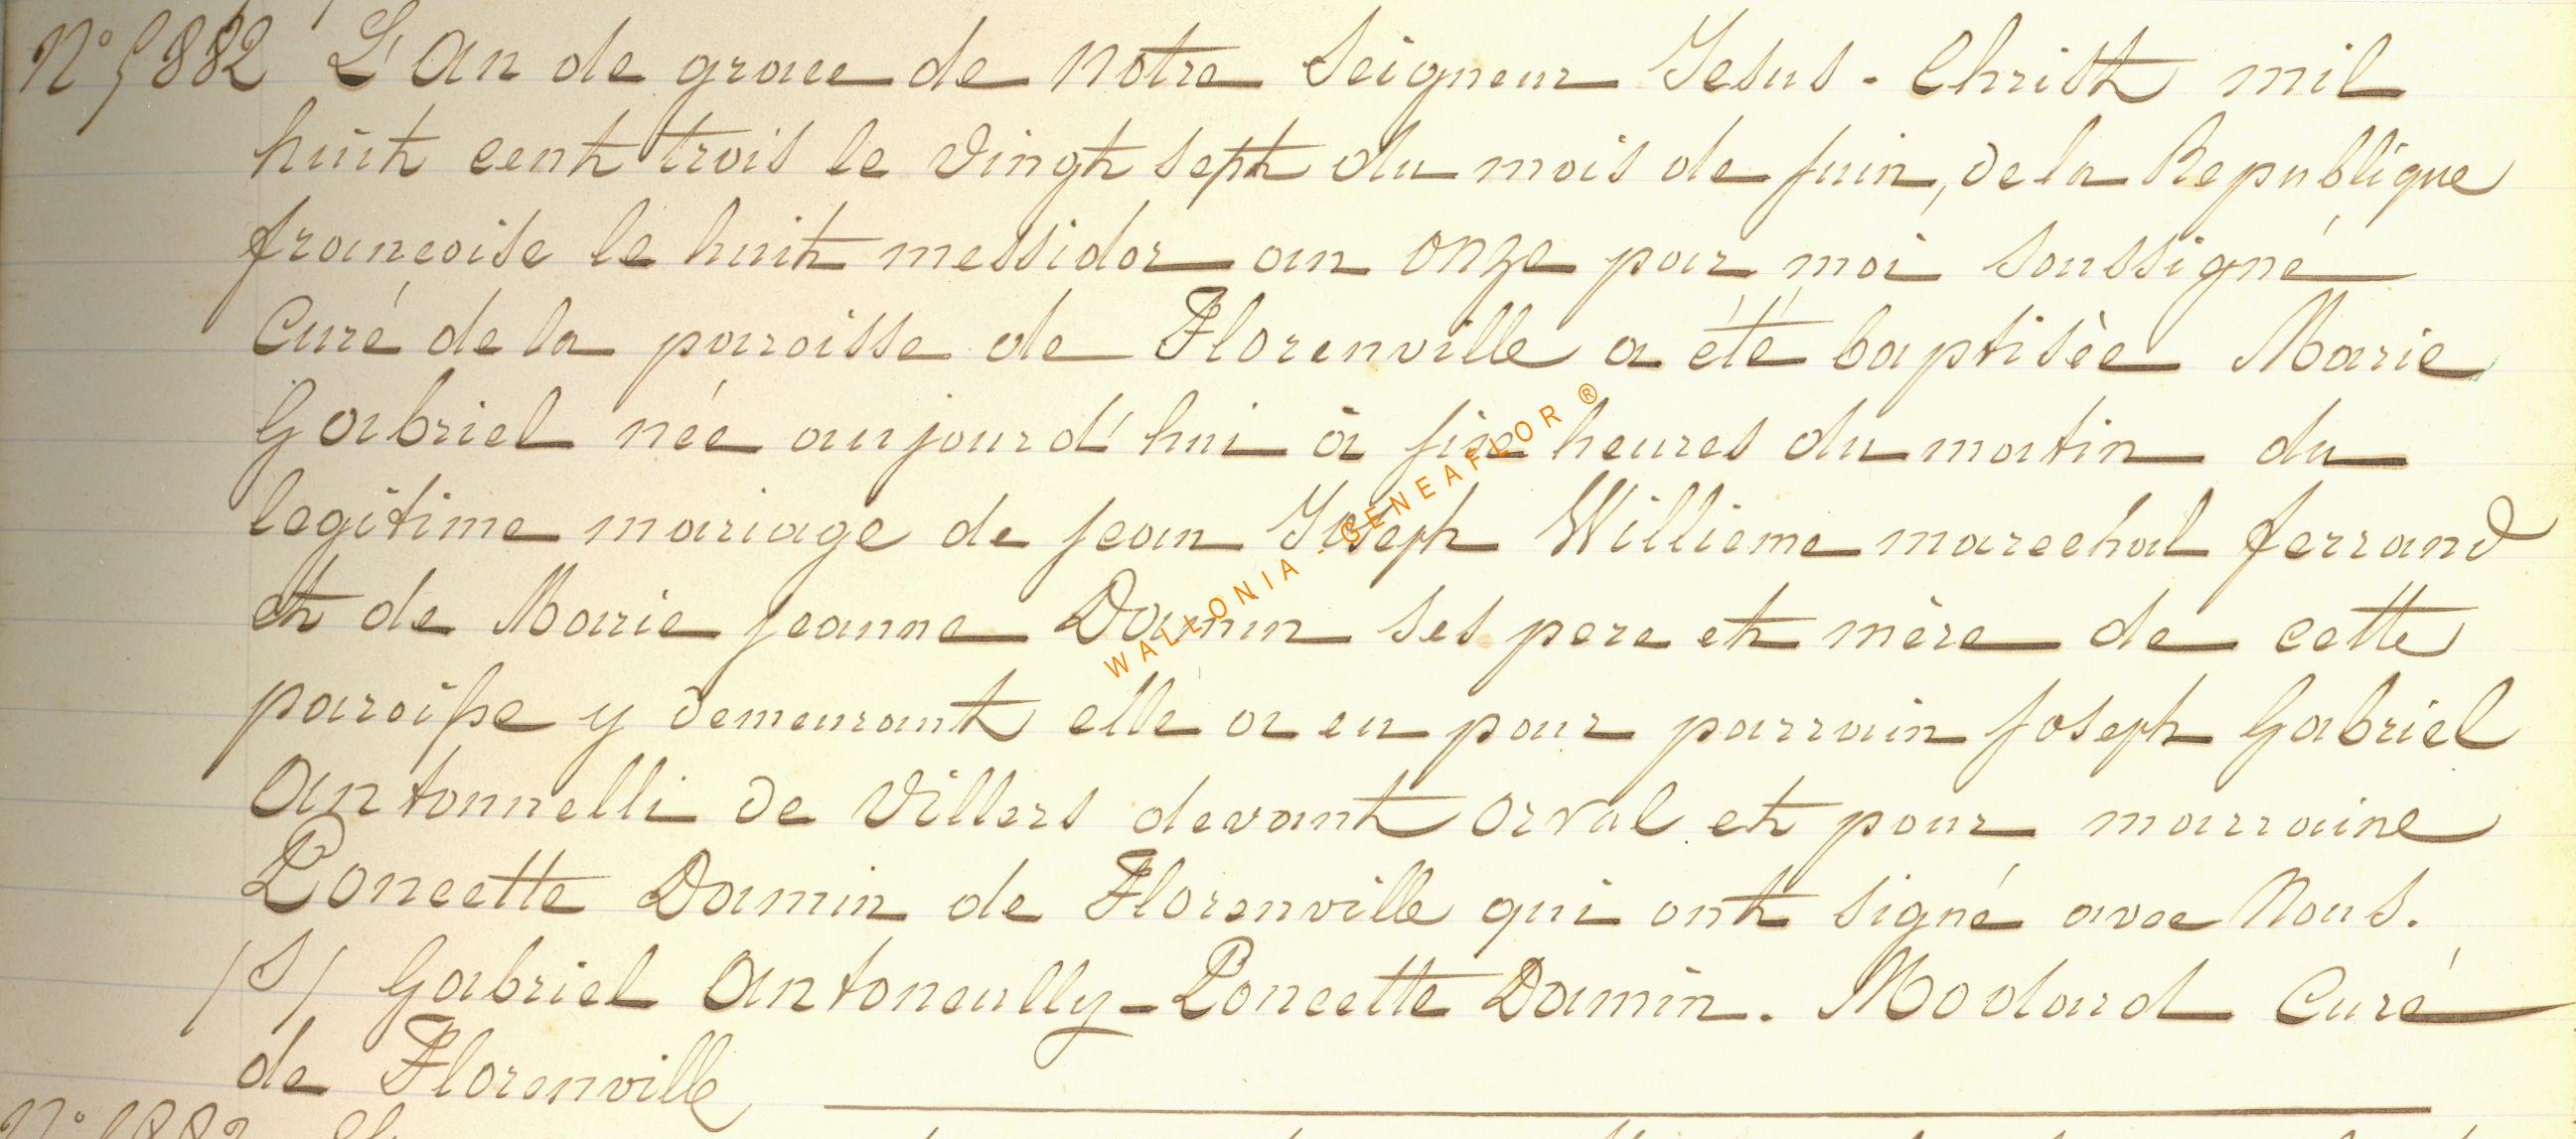 N° 5882 L'An de grace de Notre Seigneur Jesus-Christ mil
huit cent trois le vingt sept du mois de juin, de la Republique
francoise le huit messidor an onze par moi soussigné
Curé de la paroisse de Florenville a été baptisèe Marie
Gabriel née aujourd'hui à sixe heures du matin du
legitime mariage de jean Joseph Willieme marechal ferrand
et de Marie jeanne Damin ses pere et mère de cette
paroisse y demeurant elle a eu pour parrain joseph Gabriel
Antonnelli de Villers devant orval et pour marraine
Poncette Damin de Florenville qui ont signé avec Nous.
/S/ Gabriel Antoneully-Poncette Damin. Modard Curé
de Florenville
WALLONIA - GENEAFLOR ®